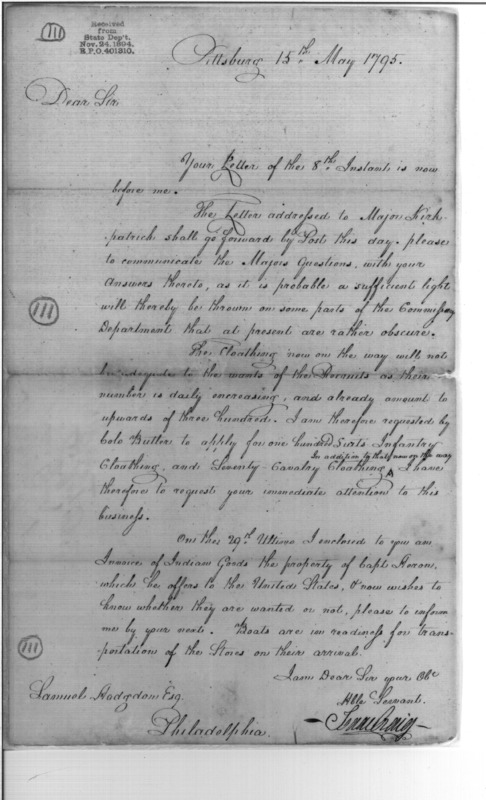 111
Received
from
State Dep't.
Nov. 24, 1894.
R.P.O. 401310.
Pittsburg 15th May 1795.
Dear Sir
Your Letter of the 8th Instant is now
before me.
The Letter addressed to Major Kirk-
patrick shall go forward by Post this day. please
to communicate the Majors Questions, with your
Answers thereto, as it is probable a sufficient light
will thereby be thrown on some parts of the Commissary
Department that at present are rather obscure.
111
The Cloathing now on the way will not
be adequate to the wants of the Recruits as their
number is daily encreasing, and already amount to
upwards of three hundred. I am therefore requested by
Colo Butler to apply for one hundred Suits Infantry
In addition to that now on the way
Cloathing, and Seventy Cavalry Cloathing, I have
therefore to request your immediate attention to this
business.
On the 29th Ultimo I enclosed to you an
Invoice of Indian Goods the property of Capt. Heron
which he offers to the United States, & now wishes to
know whether they are wanted or not, please to inform
me by your next. Boats are in readiness for trans-
portation of the Stores on their arrival.
111
I am Dear Sir your Obt
Hble Servant.
Isaac Craig
Samuel Hodgdon Esq
Philadelphia